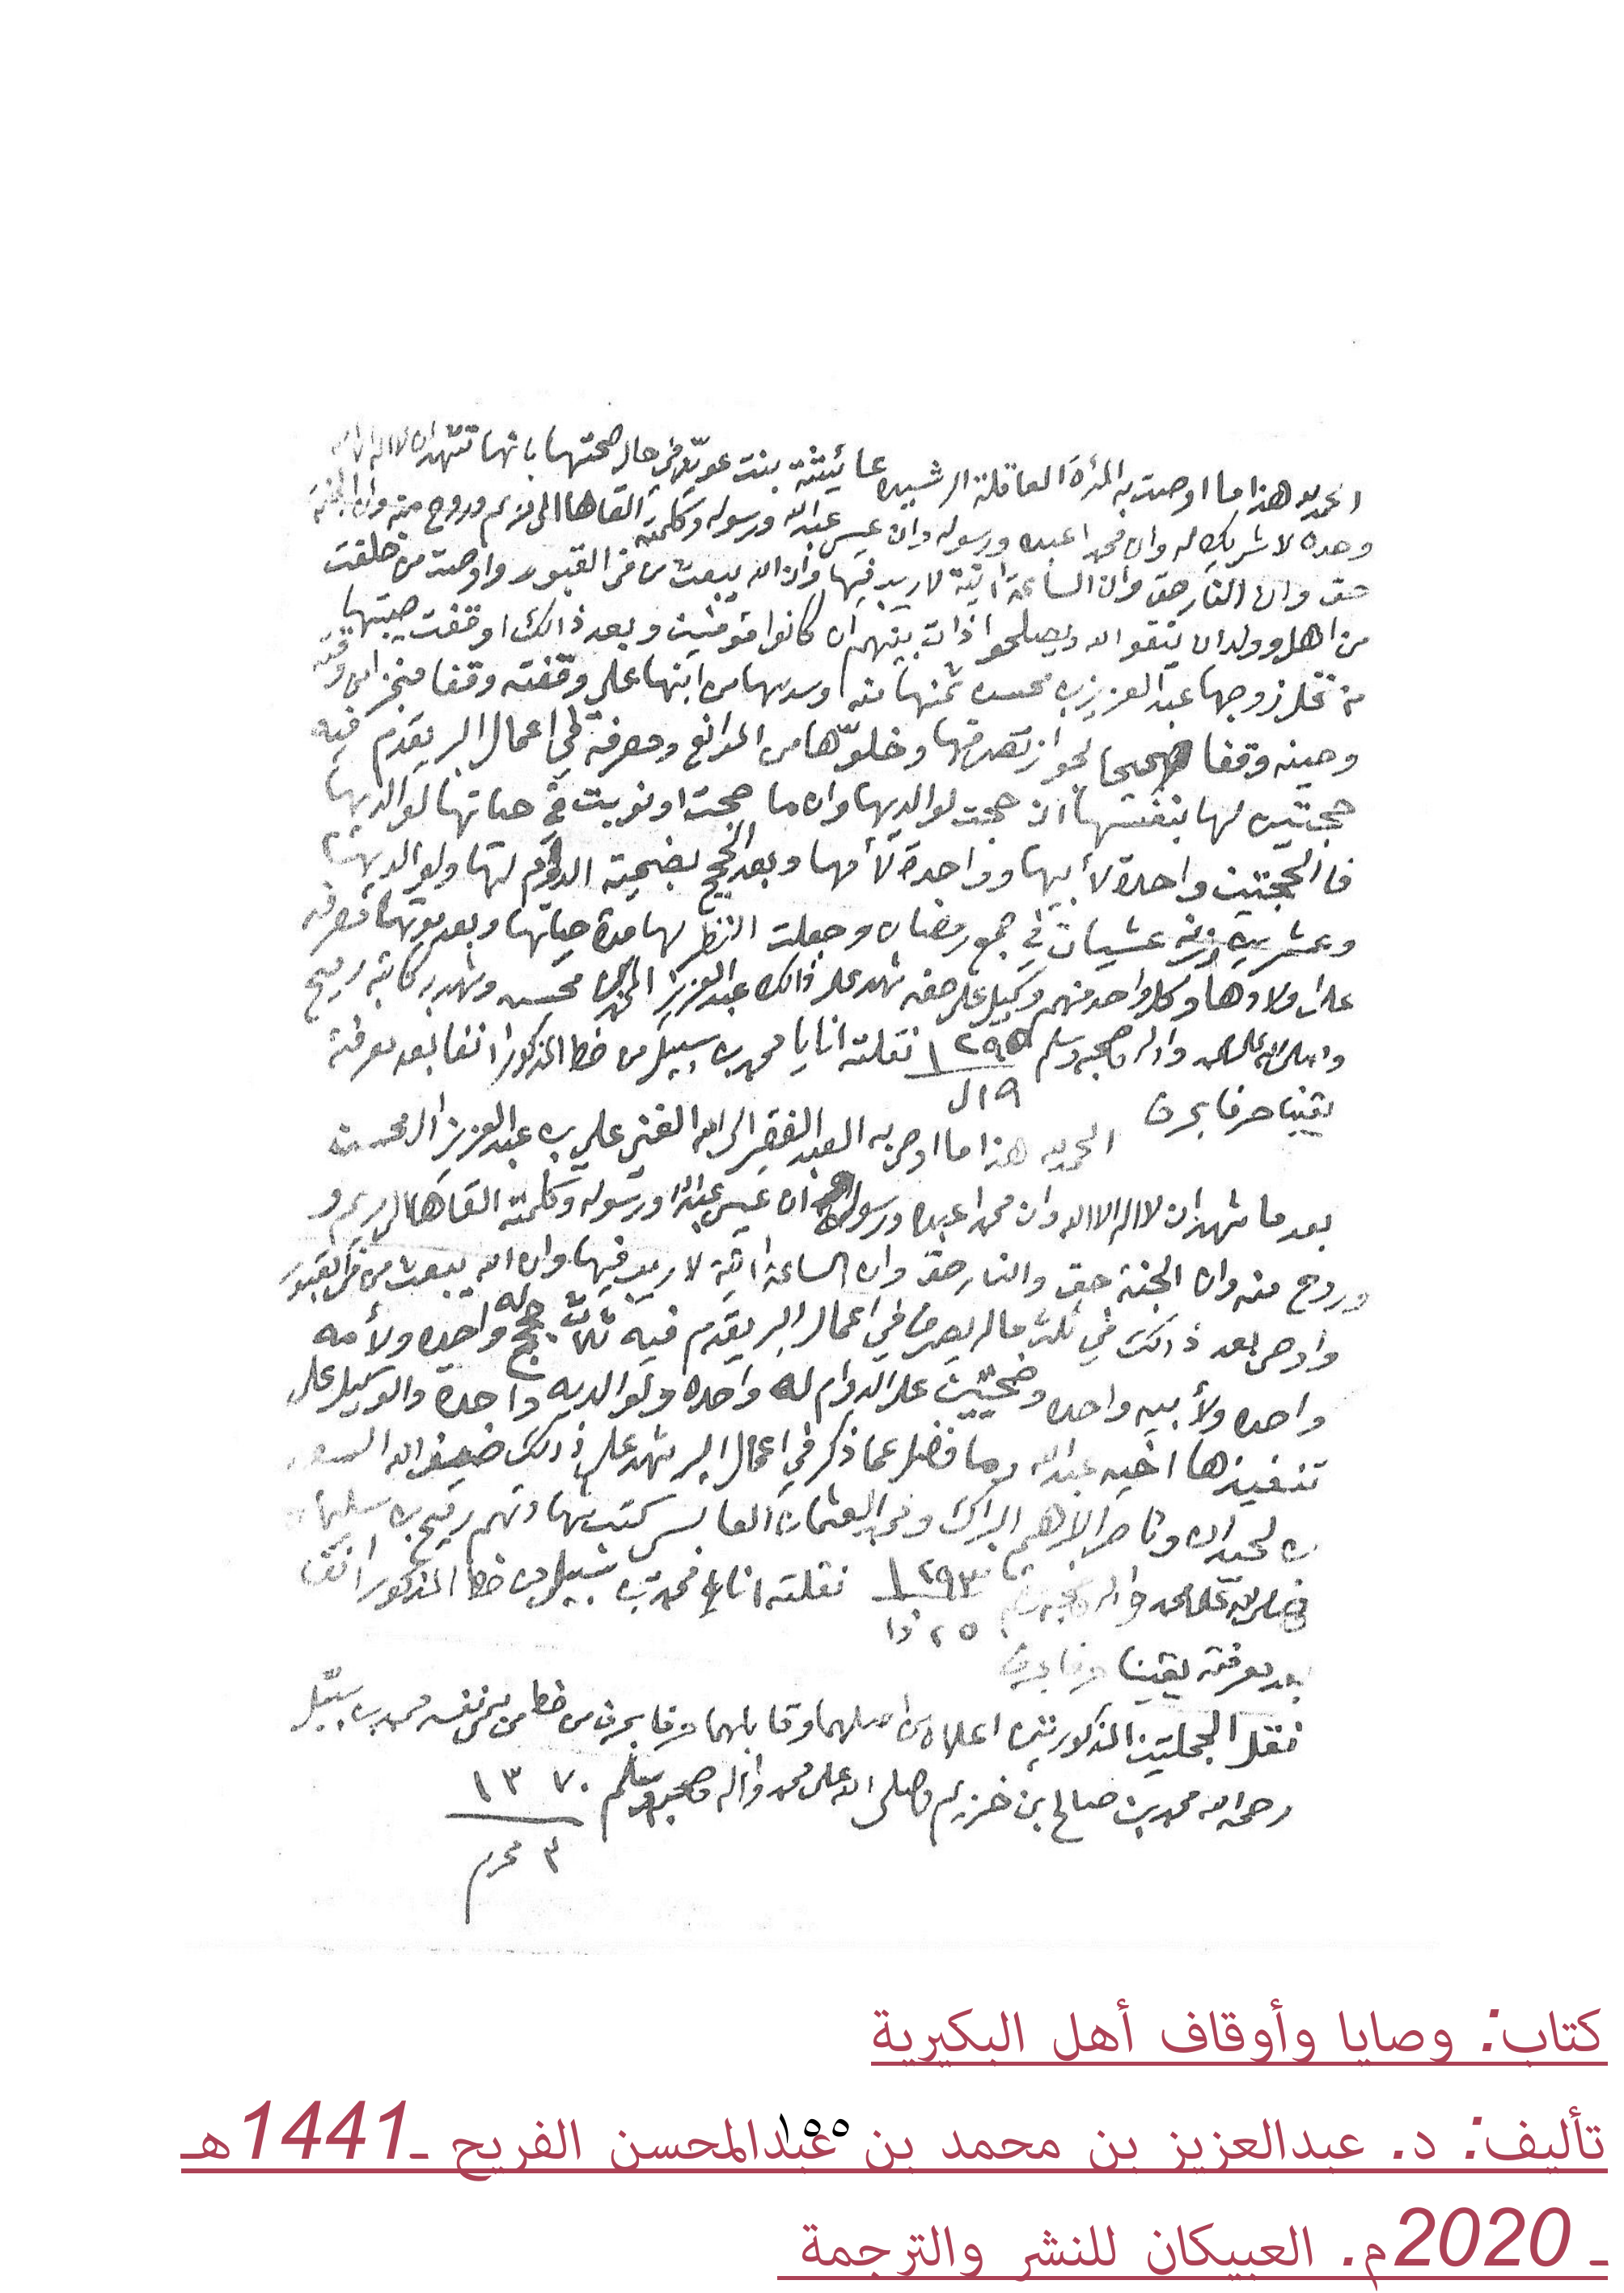 الحمد لله هذا ما اوصت به المرأة العاقلة الرشيده عائيشة بنت عويّد في حال صحتها بانها تشهد ان لا اله الا الله
وحده لا شريك له وان محمدا عبده ورسوله وان عيسى عبدالله ورسوله وكلمته القاها الى مريم وروح منه وان الجنة
حق وان النار حق وان الساعة اتية لا ريب فيها وان الله يبعث من في القبور واوصت من خلفت
من اهل وولد ان يتقوا الله ويصلحوا ذات بينهم ان كانوا مؤمنين وبعد ذالك اوقفت صيبتها
من نخل زوجها عبدالعزيز بن محسن ثمنها منه وسدسها من ابنها علي وقفته وقفا منجزا
وحينه وقفا صحيحا لجواز تصرفها وخلوّها من الموانع ومصرفه في اعمال البر يقدم فيه
حجتين لها بنفسها ان حجت لوالديها وان ما حجت او نويت في حياتها لوالديها
فالحجتين واحدة لأبيها وواحدة لأمها وبعد الحج ضحية الدوام لها ولوالديها
وعشرين وزنه عشيات في جمع رمضان وجعلت النظر لها مدة حياتها وبعد موتها
على اولادها وكل واحد منهم وكيل على حقه شهد على ذالك عبدالعزيز المحسن وشهد به كاتبه رميح
وصلى الله على محمد واله وصحبه وسلم ١٢٩٥ نقلته انا يا محمد بن سبيّل من خط المذكور انفا بعد معرفته
١٩ ل
يقينا حرفا بحرف
الحمد لله هذا ما اوصى به العبد الفقير الى الله الغني علي بن عبدالعزيز ال محسن
بعد ما شهد ان لا اله الا الله وان محمدا عبده ورسوله وان عيسى عبدالله ورسوله وكلمته القاها الى مريم و
وروح منه وان الجنة حق والنار حق وان الساعة اتية لا ريب فيها وان الله يبعث من في القبور
واوصى بعد ذالك في ثلث ماله يصرف في اعمال البر يقدم فيه ثلاث حجج له واحده ولأمه
واحده ولأبيه واحده وضحيتين على الدوام له واحده ولوالديه واحدة والوكيل على
تنفيذها اخيه عبدالله وما فضل عما ذكر في اعمال البر شهد على ذالك ضيف الله
بن لحيدان وناصر الابراهيم البراك ومحمد العثمان كتب شهادتهم رميح بن سليمان
وصلى الله على محمد واله وصحبه وسلم ١٢٩٣ نقلته انا محمد بن سبيل من خط المذكور انفا
٢٥ ذا
بعد معرفته يقينا حرفا بحرف
نقل السجلتين المذكورتين اعلاه من اصلهما وقابلهما حرفا بحرف من خط محمد بن سبيّل
رحمه الله محمد بن صالح بن خزيم وصلى الله على محمد واله وصحبه وسلم ١٣٧٠
٣ محرم
كتاب: وصايا وأوقاف أهل البكيرية
تأليف: د. عبدالعزيز بن محمد بن عبدالمحسن الفريح ـ1441هـ
١٥٥
ـ 2020م. العبيكان للنشر والترجمة